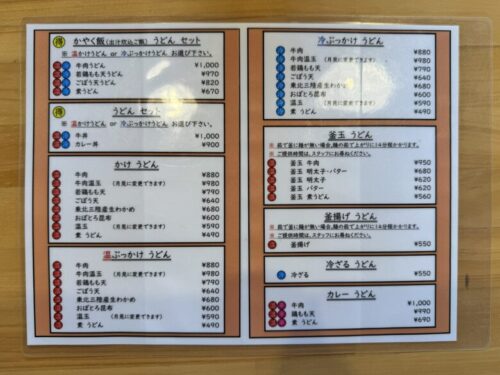 得 かやく飯(出汁炊込ご飯) うどん セット
※ 温かけうどん or 冷ぶっかけうどん お選び下さい。
温 冷 牛肉うどん ¥1,000
温 冷 若鶏もも天うどん ¥970
温 冷 ごぼう天うどん ¥820
温 冷 素うどん ¥670
得 うどん セット
※ 温かけうどん or 冷ぶっかけうどん お選び下さい。
温 冷 牛丼 ¥1,000
温 冷 カレー丼 ¥900
かけ うどん
温 牛肉 ¥880
温 牛肉温玉 (月見に変更できます) ¥980
温 若鶏もも天 ¥790
温 ごぼう天 ¥640
温 東北三陸産生わかめ ¥680
温 おぼとろ昆布 ¥600
温 温玉 (月見に変更できます) ¥590
温 素 うどん ¥490
温ぶっかけ うどん
温 牛肉 ¥880
温 牛肉温玉 (月見に変更できます) ¥980
温 若鶏もも天 ¥790
温 ごぼう天 ¥640
温 東北三陸産生わかめ ¥680
温 おぼとろ昆布 ¥600
温 温玉 (月見に変更できます) ¥590
温 素 うどん ¥490
冷ぶっかけ うどん
冷 牛肉 ¥880
冷 牛肉温玉 (月見に変更できます) ¥980
冷 若鶏もも天 ¥790
冷 ごぼう天 ¥640
冷 東北三陸産生わかめ ¥680
冷 おぼとろ昆布 ¥600
冷 温玉 (月見に変更できます) ¥590
冷 素 うどん ¥490
釜玉 うどん
※ 茹で釜に麺が無い場合、麺の茹で上がりに14分程かかります。
※ ご提供時間は、スタッフにお尋ねください。
温 釜玉 牛肉 ¥950
温 釜玉 明太子・バター ¥680
温 釜玉 明太子 ¥620
温 釜玉 バター ¥620
温 釜玉 素うどん ¥560
釜揚げ うどん
※ 茹で釜に麺が無い場合、麺の茹で上がりに14分程かかります。
※ ご提供時間は、スタッフにお尋ねください。
温 釜揚げ ¥550
冷ざる うどん
冷 冷ざる ¥550
カレー うどん
牛肉 ¥1,000
鶏もも天 ¥990
素 うどん ¥690